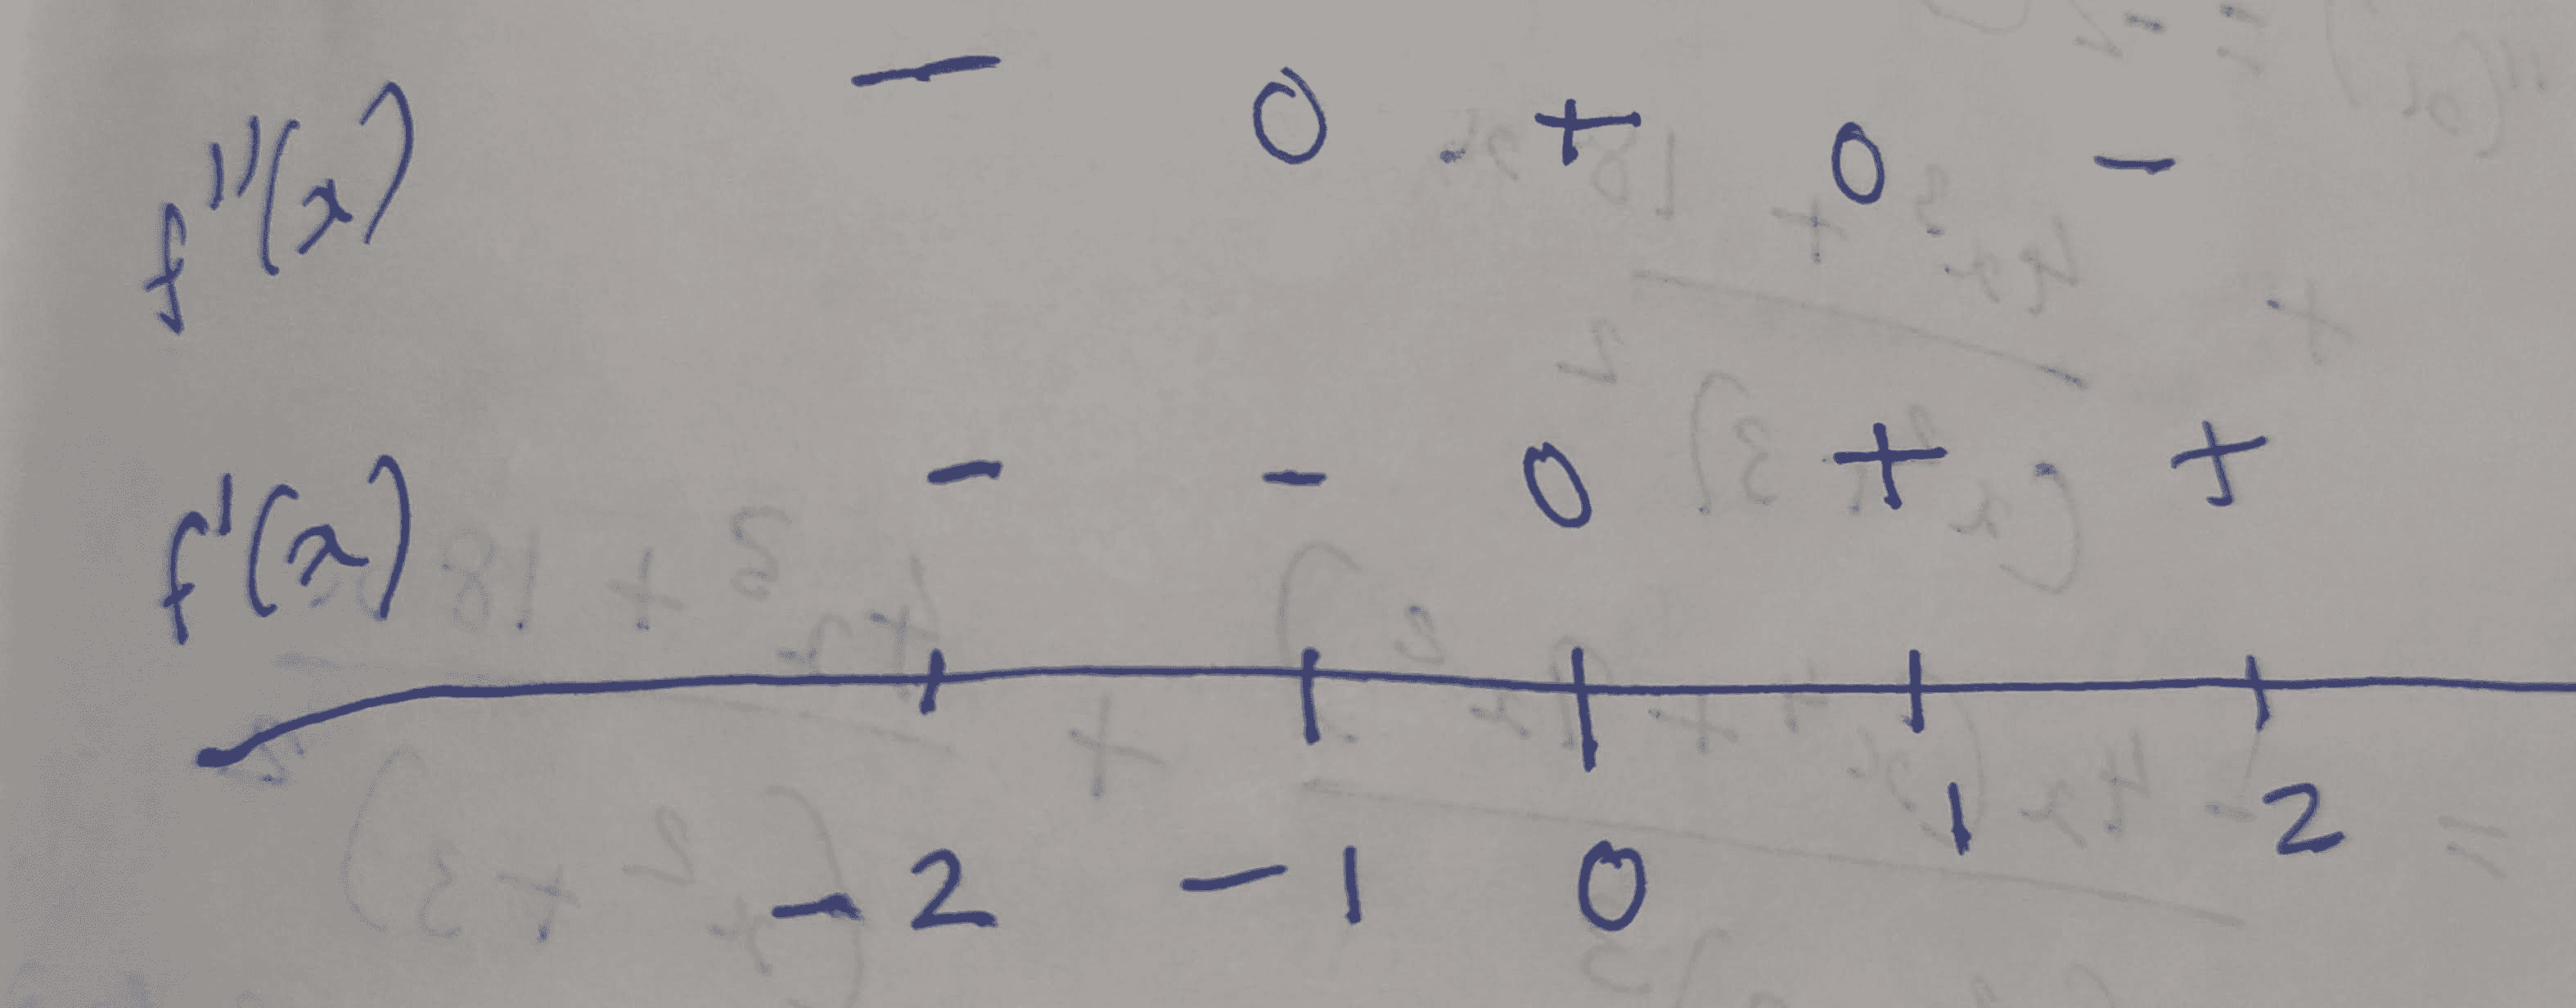 f''(x) − 0 + 0 −
f'(x) − − 0 + +
−2 −1 0 1 2